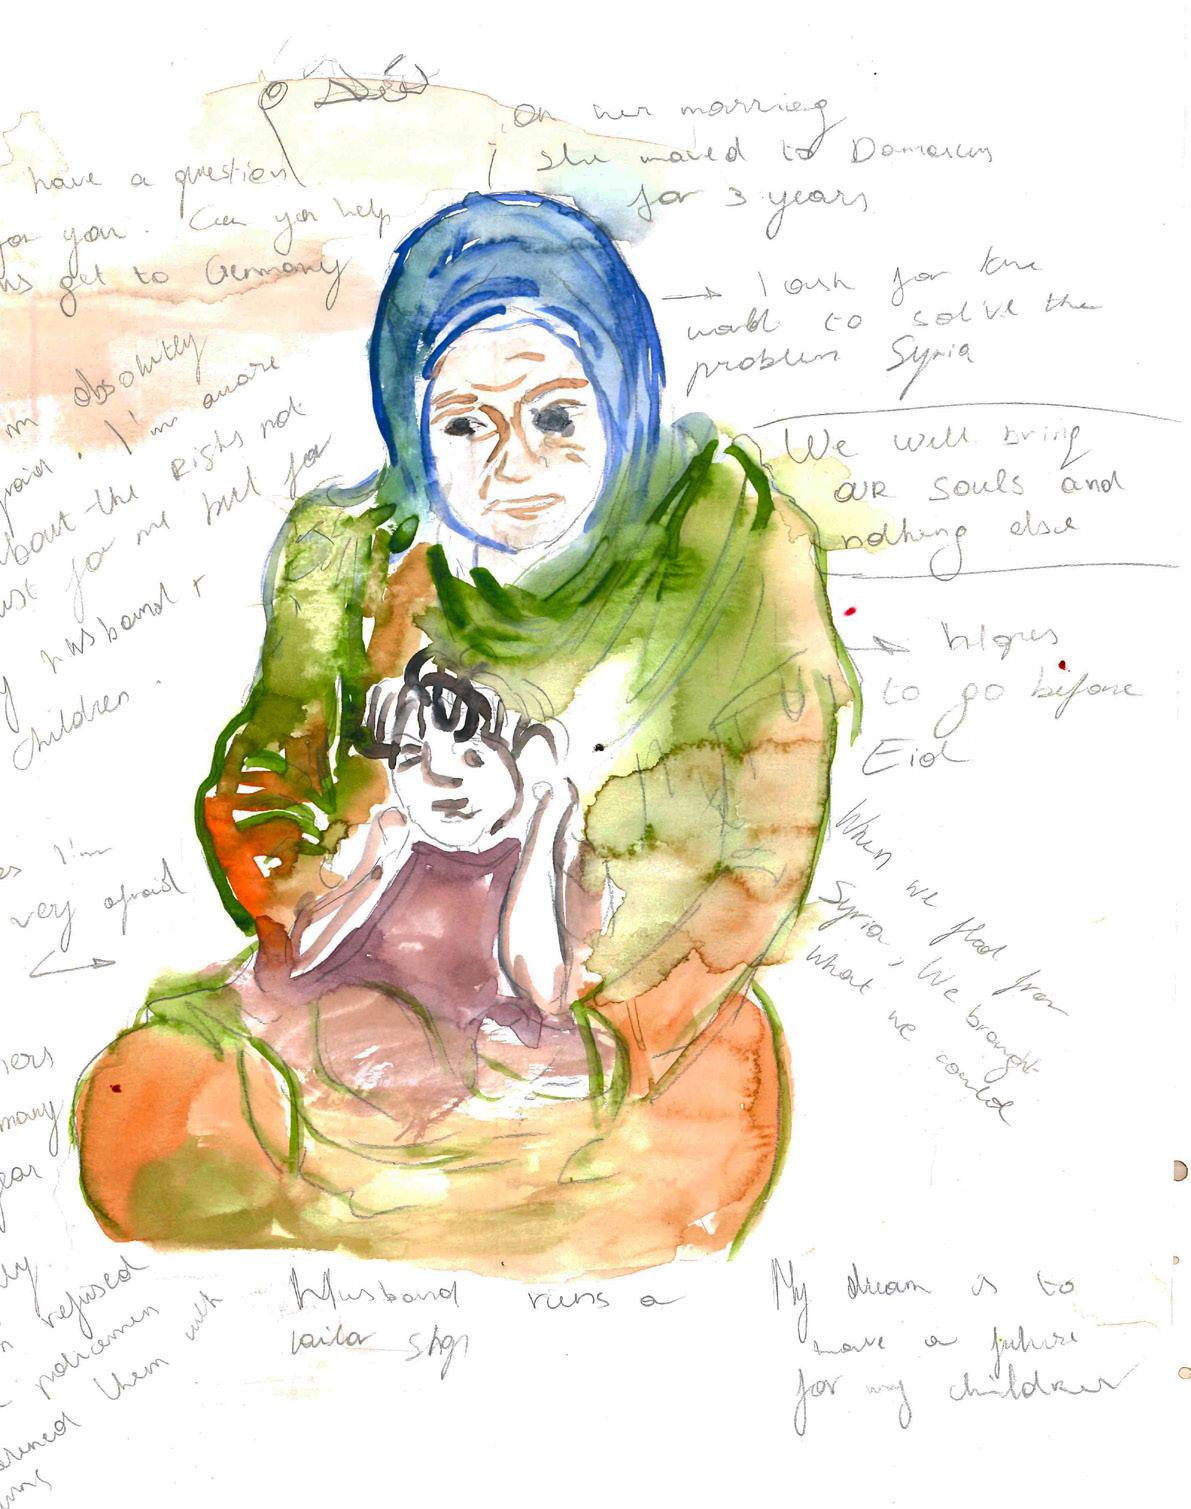 have a question
for you. Can you help
us get to Germany
On her marrieg
she moved to Damascus
for 3 years
I ask for the
world to solve the
problem Syria
absolutly
I'm aware
about the Rights not
just for me but for
husband +
children.
We will bring
OUR SOULS and
nothing else
hopes
to go before
Eid
I'm
very afraid
When we flad from
Syria, We brought
what we could
many
year
refused
policemen
them with
Husband runs a
tailor shop
My dream is to
have a future
for my children